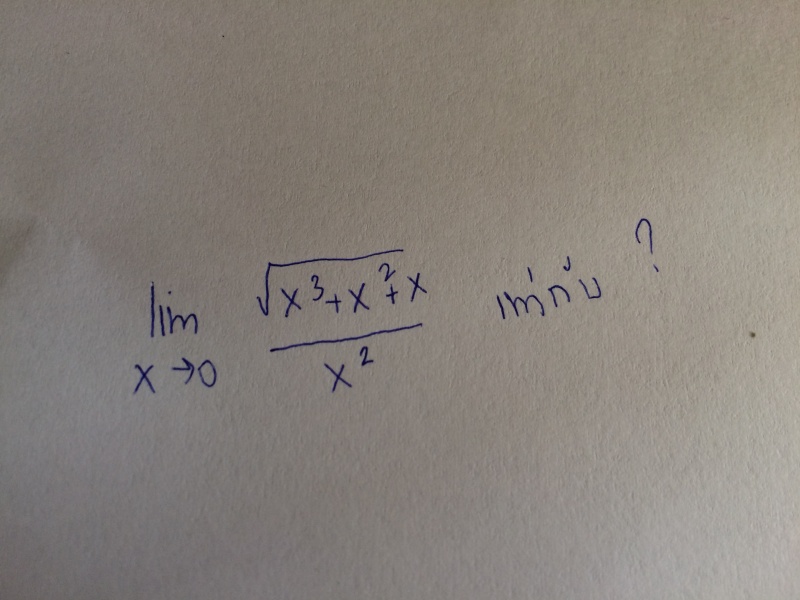 lim x→0 √(x³+x²+x) / x² เท่ากับ ?